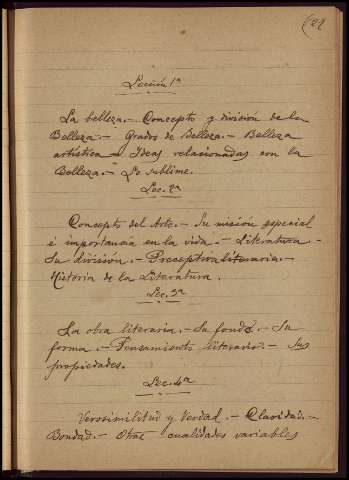 Lección 1ª
La belleza.- Concepto y división de la
Belleza.- Grados de Belleza.- Belleza
artística.- Ideas relacionadas con la
Belleza.- Lo sublime.
Lec. 2ª
Concepto del Arte.- Su misión especial
é importancia en la vida.- Literatura.-
Su división.- Preceptiva literaria.-
Historia de la Literatura.
Lec. 3ª
La obra literaria.- Su fondo.- Su
forma.- Pensamiento literario.- Sus
propiedades.
Lec. 4ª
Verosimilitud y Verdad.- Claridad.-
Bondad.- Otras cualidades variables